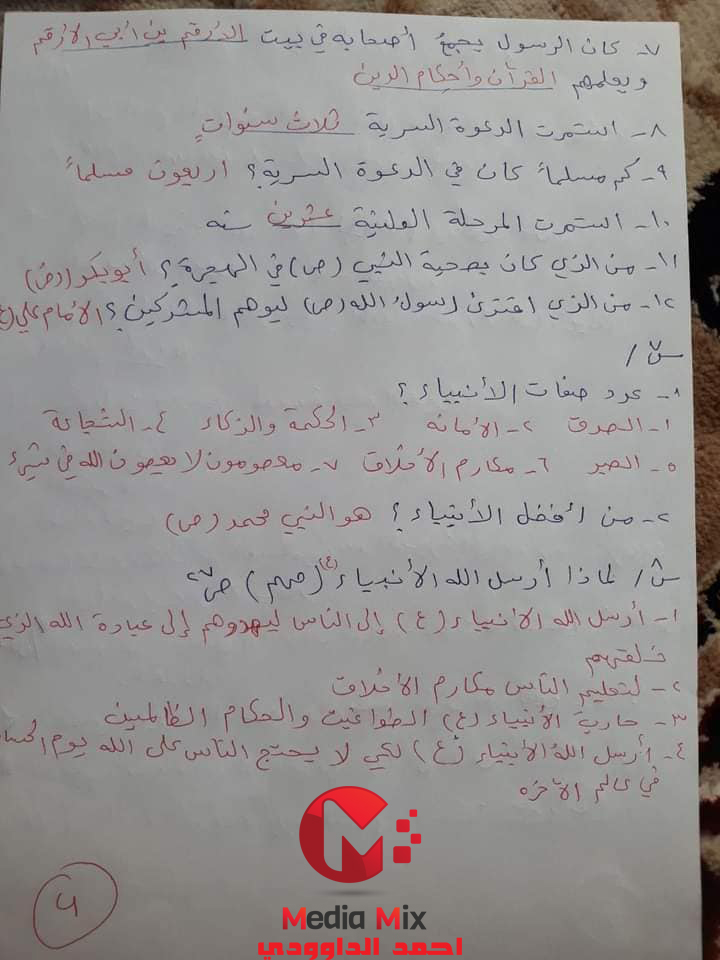 ٧- كان الرسول يجمع أصحابه في بيت الأرقم بن أبي الأرقم
ويعلمهم القرآن وأحكام الدين
٨- استمرت الدعوة السرية ثلاث سنوات
٩- كم مسلماً كان في الدعوة السرية؟ اربعون مسلماً
١٠- استمرت المرحلة العلنية عشرين سنه
١١- من الذي كان بصحبة النبي (ص) في الهجرة؟ أبو بكر (رض)
١٢- من الذي افترش رسول الله (ص) ليوهم المشركين؟ الإمام علي (ع
س٧/
١- عدد صفات الأنبياء؟
١- الصدق ٢- الأمانه ٣- الحكمة والذكاء ٤- الشجاعة
٥- الصبر ٦- مكارم الأخلاق ٧- معصومون لا يعصون الله في شيء
٢- من أفضل الأنبياء؟ هو النبي محمد (ص)
س٨/ لماذا أرسل الله الأنبياء (ع) (مهم) ص٢٧
١- أرسل الله الأنبياء (ع) إلى الناس ليهدوهم إلى عبادة الله الذي
خلقهم
٢- لتعليم الناس مكارم الأخلاق
٣- حارب الأنبياء (ع) الطواغيت والحكام الظالمين
٤- أرسل الله الأنبياء (ع) لكي لا يحتج الناس على الله يوم الحسا
في عالم الآخره
Media Mix
احمد الداوودي